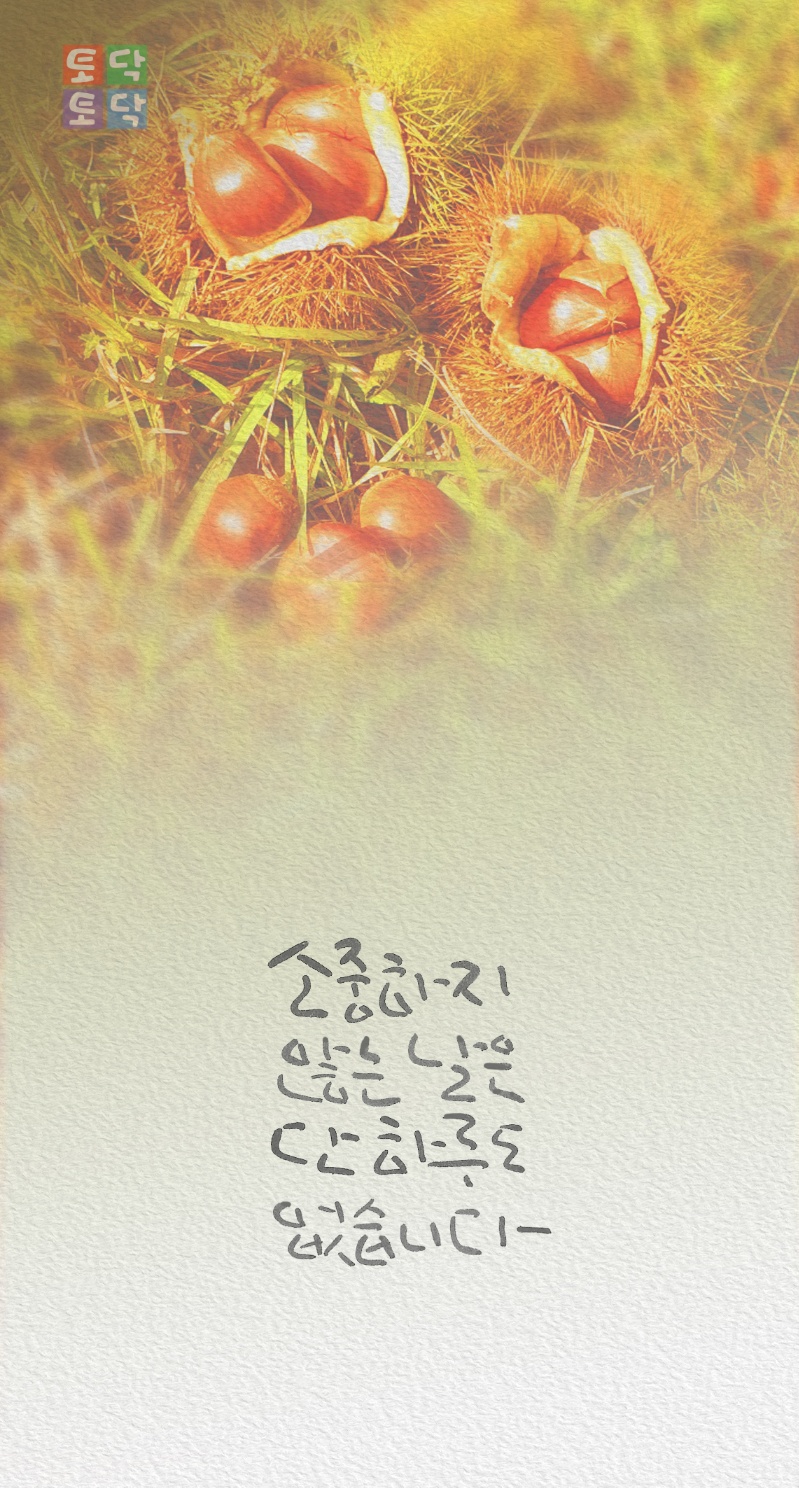 토닥
토닥
소중하지
않은 날은
단 하루도
없습니다